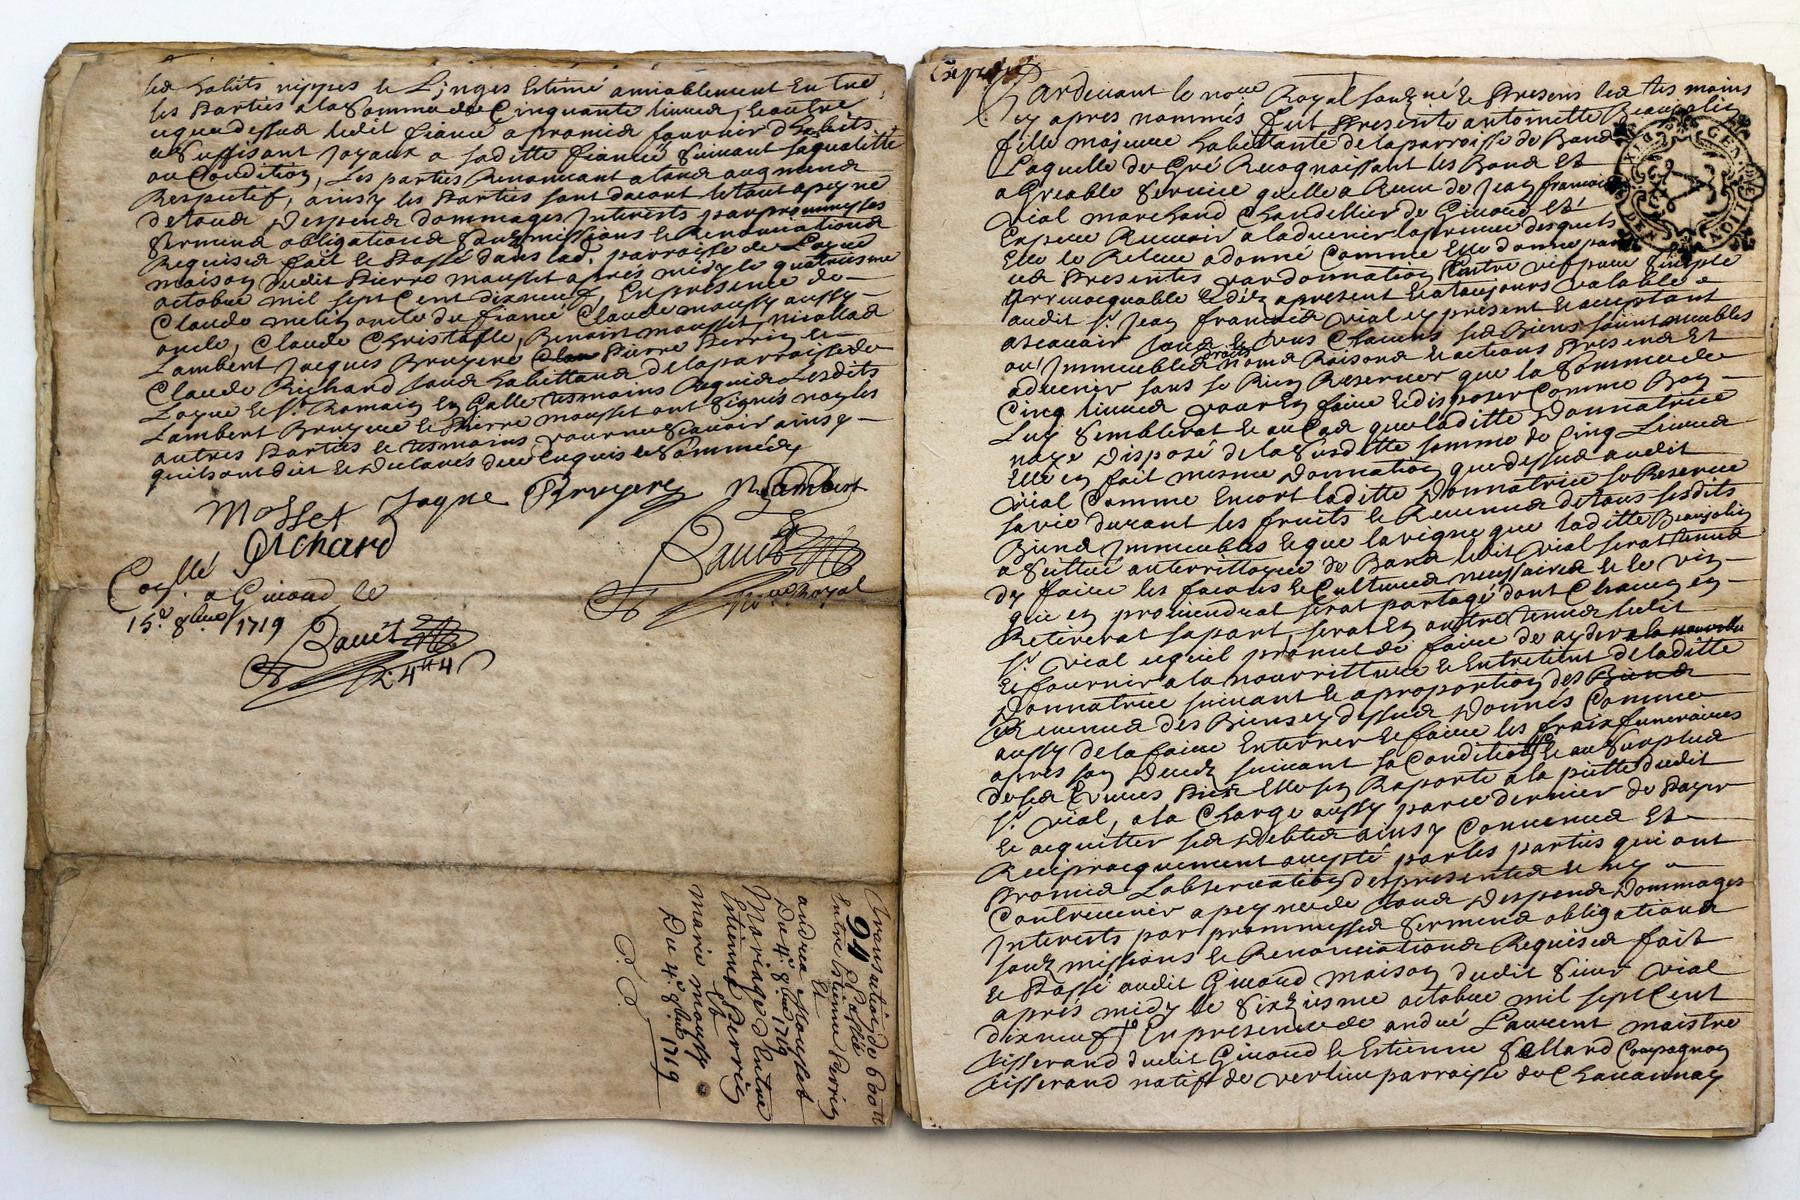 les habits nippes et Linges Estimé amiablement Entre
les Parties a la Somme de Cinquante livres, Et outre
ce que dessus ledit fiancé a promis fournir d'habits
et Suffisant Joyaux a sa ditte fiancée Suivant sa qualitté
ou Condition, Les parties Renonceant a tous augmens
Respectif, ainsy les Parties sont dacort le tout a peyne
de tous despens dommages Interets par prommesses
Sermens obligations Soubzmissions et Renonciations
Requises fait et Passé dans lad. parroisse de
maison dudit Pierre mousset aprés midy le quatriesme
octobre mil sept Cent dixneuf, En presence de
Claude oncle du fiancé Claude moussy aussy
oncle, Claude Cristofle, Benoin mousset, nicollas
Lambert Jacques Bruyere Pierre Perrin et
Claude Richard tous habittans de la parroisse de
et St. Romain En Galle tesmoins Requis Lesdits
Lambert Bruyere et Pierre mousset ont Signés non les
autres Parties et tesmoins pour ne Scavoir ainsy
quils ont dit et declarés de ce Enquis et Sommés
Mosset Jaque Bruyere N Lambert
Richard
not. Royal
à Givord le
15e 8bre 1719
Pardevant le nore Royal soubzné et Presens les tesmoins
cy apres nommés fut Presente antoinette Beaujolin
fille majeure habittante de la parroisse de Bans
Laquelle de Gré Recognoissant les Bons Et
agreable Service quelle a Receu de Jean francois
Vial marchand Chandellier de Givord Et
Espere Recevoir a ladvenir la preuve desquels
Elle le Releve a donné Comme Elle donne par
ces Presentes par donnation Entre vif pure Simple
Irrevocquable Et dez apresent Et a tousjours valable
audit Sr. Jean francois Vial cy présent Et acceptant
ascavoir tous Et uns Chacuns ses Biens soint meubles
ou Immeubles droits noms Raisons Et actions Presens Et
advenir sans se Rien Reserver que la Somme de
Cinq livres pour En faire Et disposer Comme Bon
Luy Semblerat Et au Cas que laditte Donnatrice
naye Disposé de la Susditte somme de Cinq Livres
Elle En fait mesme Donnation que dessus audit
Vial Comme Encort laditte Donnatrice se Reserve
sa vie durant les fruits Et Revenus de tous sesdits
Biens Immeubles Et que la vigne que laditte Beaujolin
a Scittué au territtoire de Bans ledit Vial serat tenus
dy faire les facons Et Cultures necessaires Et le vin
qui En proviendrat serat partagé dont Chacun En
Retirerat sa part, serat En outre tenus ledit
Sr. Vial ce quil promet de faire de ayder
Et fournir a la nourritture Et Entretient de laditte
Donnatrice suivant Et a proportion des Biens
Revenus des Biens cy dessus Donnés Comme
aussy de la faire Enterrer Et faire les fraix funeraires
aprés son Decedz suivant sa Condition Et au Surplus
de ses Euvres Pies Elle sen Raporte a la pietté dudit
Sr. Vial, a la Charge aussy par ce dernier de Payer
Et acquitter ses Debtes ainsy Convenus Et
Reciprocquement accepté par les parties qui ont
Promis Lobservation des presentes Et ny
Contrevenir a peyne de tous Despens Dommages
Interets par prommesses Sermens obligations
soubzmissions Et Renonciations Requises fait
Et Passé audit Givord maison dudit Sieur Vial
aprés midy le Sixiesme octobre mil sept Cent
dixneuf En presence de andré Laurent maistre
tisserand dudit Givord Et Estienne Compagnon
tisserand natif de parroisse de Chavannay
Transaction de
94
Passée
Entre Estienne Perrin
Et
andrea Mousset
Du 4e 8bre 1719
Mariage d'Entre
Estienne Perrin
Et
marie moussy
Du 4e 8bre 1719